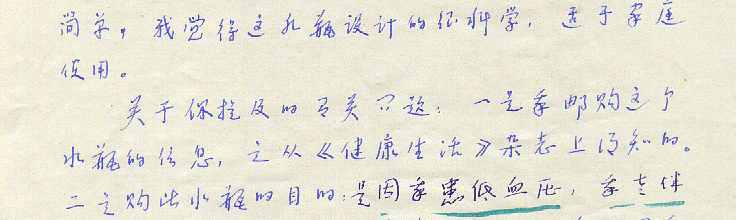 简单,我觉得这水瓶设计的很科学,适于家庭
使用。
关于你提及的有关问题:一是我邮购这个
水瓶的信息,是从《健康生活》杂志上得知的。
二是购此水瓶的目的:是因我患低血压,我老伴